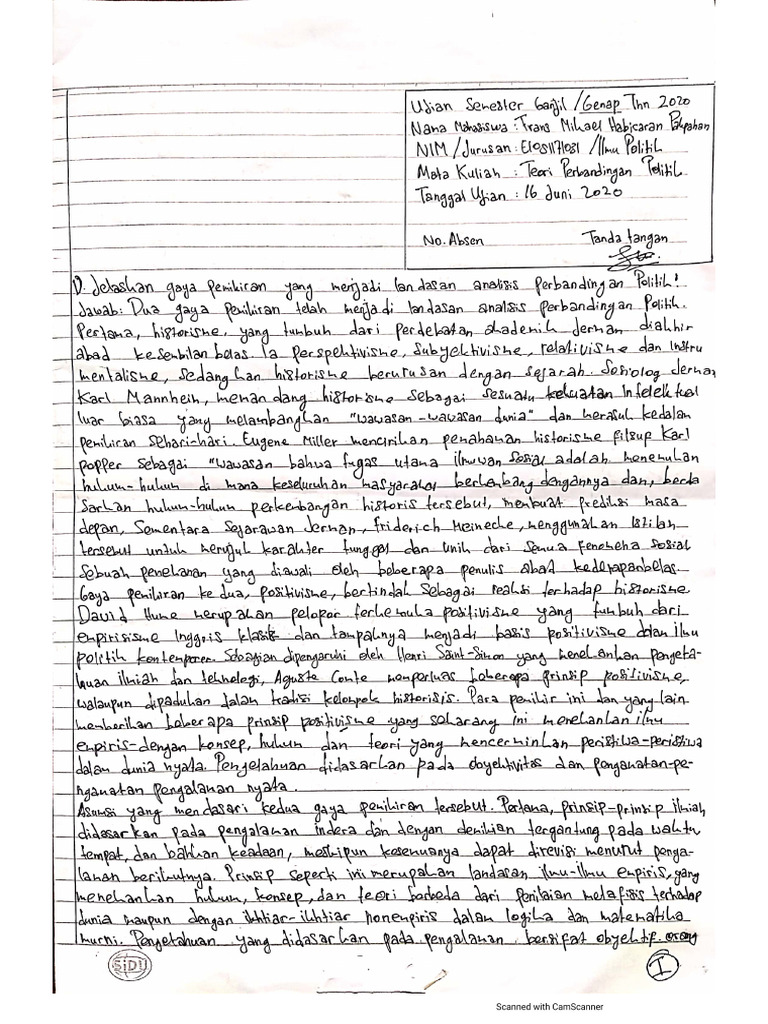 Ujian Semester Ganjil /Genap Thn 2020
Nama Mahasiswa : Trans Mikael Habicaran Pakpahan
NIM / Jurusan : E1051171081 / Ilmu Politik
Mata Kuliah : Teori Perbandingan Politik
Tanggal Ujian : 16 Juni 2020
No. Absen Tanda tangan
1). Jelaskan gaya pemikiran yang menjadi landasan analisis perbandingan Politik!
Jawab: Dua gaya pemikiran telah menjadi landasan analisis perbandingan Politik.
Pertama, historisme, yang tumbuh dari perdebatan akademik Jerman diakhir
abad kesembilan belas. Ia perspektivisme, subyektivisme, relativisme dan Instru
mentalisme, sedangkan historisme berurusan dengan sejarah. Sosiolog Jerman
Karl Mannhein, memandang historisme sebagai sesuatu kekuatan Intelektual
luar biasa yang melambangkan "wawasan-wawasan dunia" dan merasuk kedalam
pemikiran sehari-hari. Eugene Miller mencirikan pemahaman historisme filsup Karl
popper sebagai "wawasan bahwa tugas utama ilmuwan sosial adalah menemukan
hukum-hukum di mana keseluruhan masyarakat berkembang dengannya dan, berda
sarkan hukum-hukum perkembangan historis tersebut, membuat prediksi masa
depan, Sementara sejarawan Jerman, friderich Meinecke, menggunakan Istilah
tersebut untuk merujuk karakter tunggal dan unik dari semua fenomena sosial
sebuah penekanan yang diawali oleh beberapa penulis abad kedelapanbelas.
Gaya pemikiran ke dua, positivisme, bertindak sebagai reaksi terhadap historisme
David Hume merupakan pelopor terkemuka positivisme yang tumbuh dari
empirisisme Inggris klasik dan tampaknya menjadi basis positivisme dalam ilmu
politik kontemporer. Sebagian dipengaruhi oleh Henri Saint-Simon yang menekankan pengeta-
huan ilmiah dan teknologi, Aguste Comte memperluas beberapa prinsip positivisme,
walaupun dipadukan dalam tradisi kelompok historisis. Para pemikir ini dan yang lain
memberikan beberapa prinsip positivisme yang sekarang ini menekankan ilmu
empiris-dengan konsep, hukum dan teori yang mencerminkan peristiwa-peristiwa
dalam dunia nyata. Pengetahuan didasarkan pada obyektivitas dan pengamatan-pe-
ngamatan pengalaman nyata.
Asumsi yang mendasari kedua gaya pemikiran tersebut. Pertama, prinsip-prinsip ilmiah,
didasarkan pada pengalaman indera dan dengan demikian tergantung pada waktu
tempat, dan bahkan keadaan, meskipun kesemuanya dapat direvisi menurut penga-
laman berikutnya. Prinsip seperti ini merupakan landasan ilmu-ilmu empiris, yang
menekankan hukum, konsep, dan teori berbeda dari penilaian metafisis terhadap
dunia maupun dengan ikhtiar-ikhtiar nonempiris dalam logika dan matematika
murni. Pengetahuan yang didasarkan pada pengalaman bersifat obyektif. orang
SIDU
I
Scanned with CamScanner